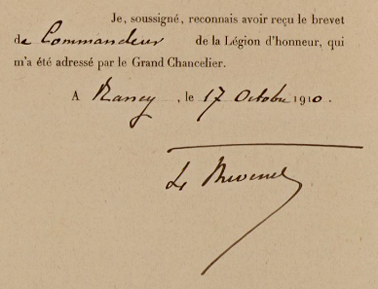 Je, soussigné, reconnais avoir reçu le brevet
de Commandeur de la Légion d'honneur, qui
m'a été adressé par le Grand Chancelier.
A Nancy, le 17 Octobre 1910.
Le